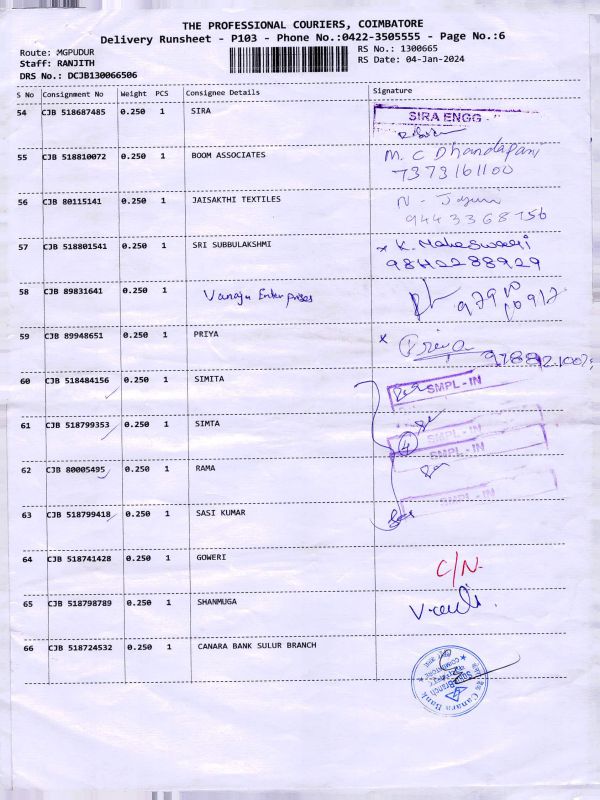 THE PROFESSIONAL COURIERS, COIMBATORE
Delivery Runsheet - P103 - Phone No.:0422-3505555 - Page No.:6
Route: MGPUDUR
Staff: RANJITH
DRS No.: DCJB130066506
RS No.: 1300665
RS Date: 04-Jan-2024
S No Consignment No Weight PCS Consignee Details Signature
54 CJB 518687485 0.250 1 SIRA SIRA ENGG
55 CJB 518810072 0.250 1 BOOM ASSOCIATES M. C Dhandapani
7373161100
56 CJB 80115141 0.250 1 JAISAKTHI TEXTILES N -
9443368756
57 CJB 518801541 0.250 1 SRI SUBBULAKSHMI x K. Maheswari
9842288929
58 CJB 89831641 0.250 1 Vanaja Enterprises
59 CJB 89948651 0.250 1 PRIYA x Priya
60 CJB 518484156 0.250 1 SIMITA SMPL - IN
61 CJB 518799353 0.250 1 SIMTA SMPL - IN
4 SMPL - IN
62 CJB 80005495 0.250 1 RAMA
SMPL - IN
63 CJB 518799418 0.250 1 SASI KUMAR
64 CJB 518741428 0.250 1 GOWERI C/N.
65 CJB 518798789 0.250 1 SHANMUGA
66 CJB 518724532 0.250 1 CANARA BANK SULUR BRANCH
Canara Bank
Sulur Branch
COIMBATORE